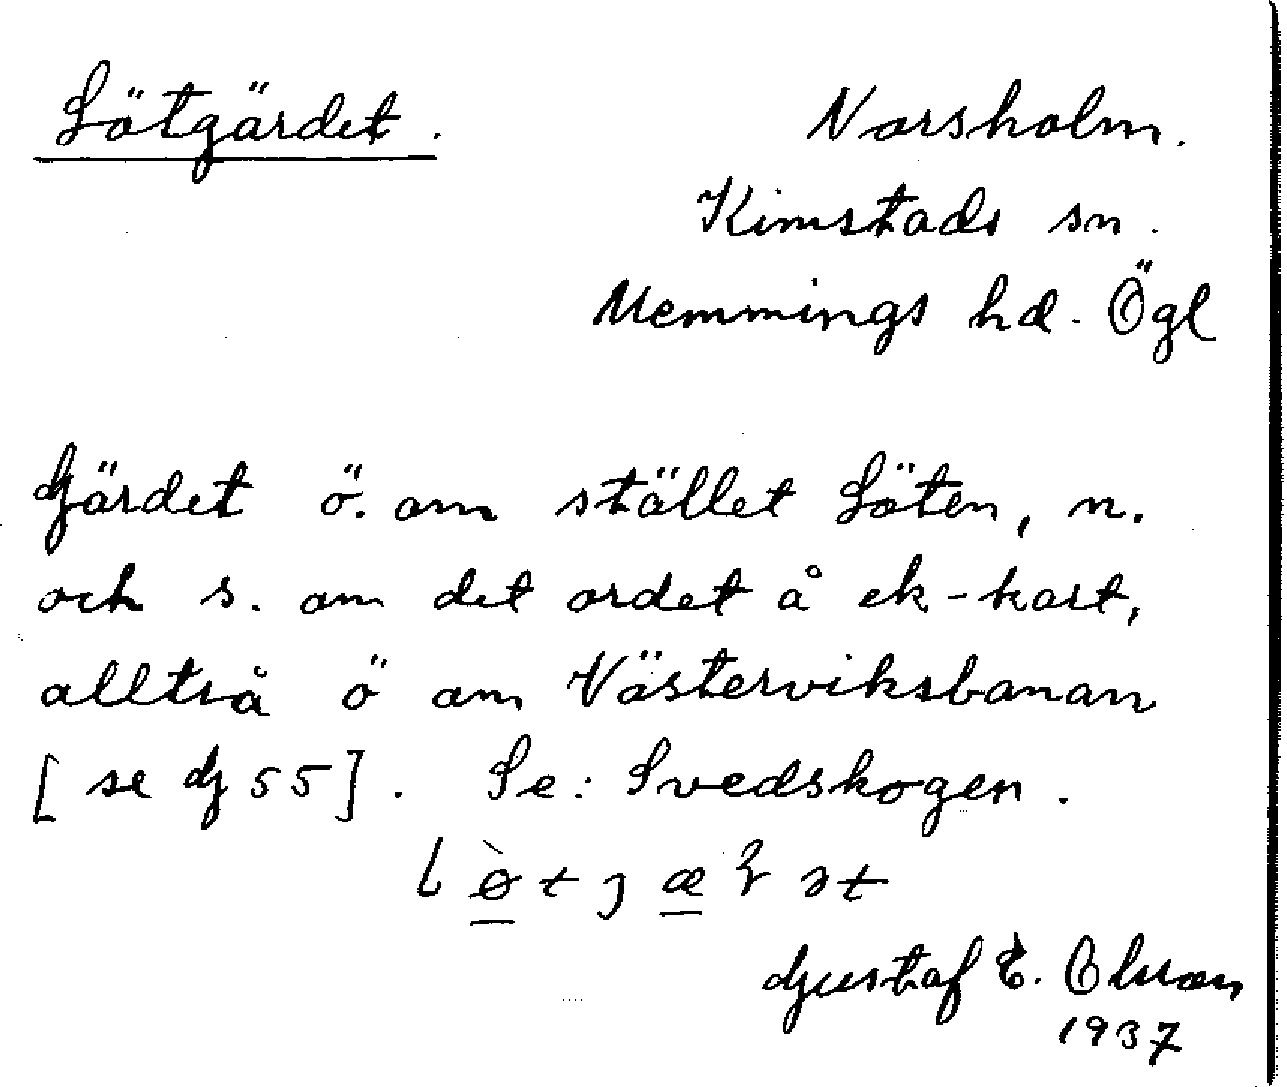 Lötgärdet.
Norsholm.
Kimstads sn.
Memmings hd. Ögl
Gärdet ö. om stället Löten, n.
och s. om det ordet å ek-kart,
alltså ö om Västerviksbanan
[se G 55]. Se: Svedskogen.
Gustaf E. Olsson
1937